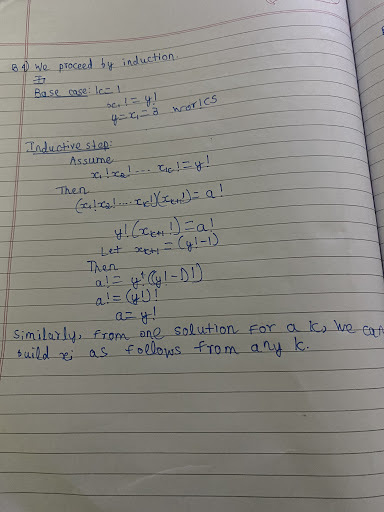 B 1) We proceed by induction.
Base case: k=1
x₁! = y!
y=x₁=3 works
Inductive step:
Assume
x₁!x₂! ... xₖ! = y!
Then
(x₁!x₂!....xₖ!)(xₖ₊₁!) = a!
y!(xₖ₊₁!) = a!
Let xₖ₊₁ = (y!-1)
Then
a! = y!(y!-1)!)
a! = (y!)!
a = y!
Similarly, from one solution for a k, we can
build xᵢ as follows from any k.